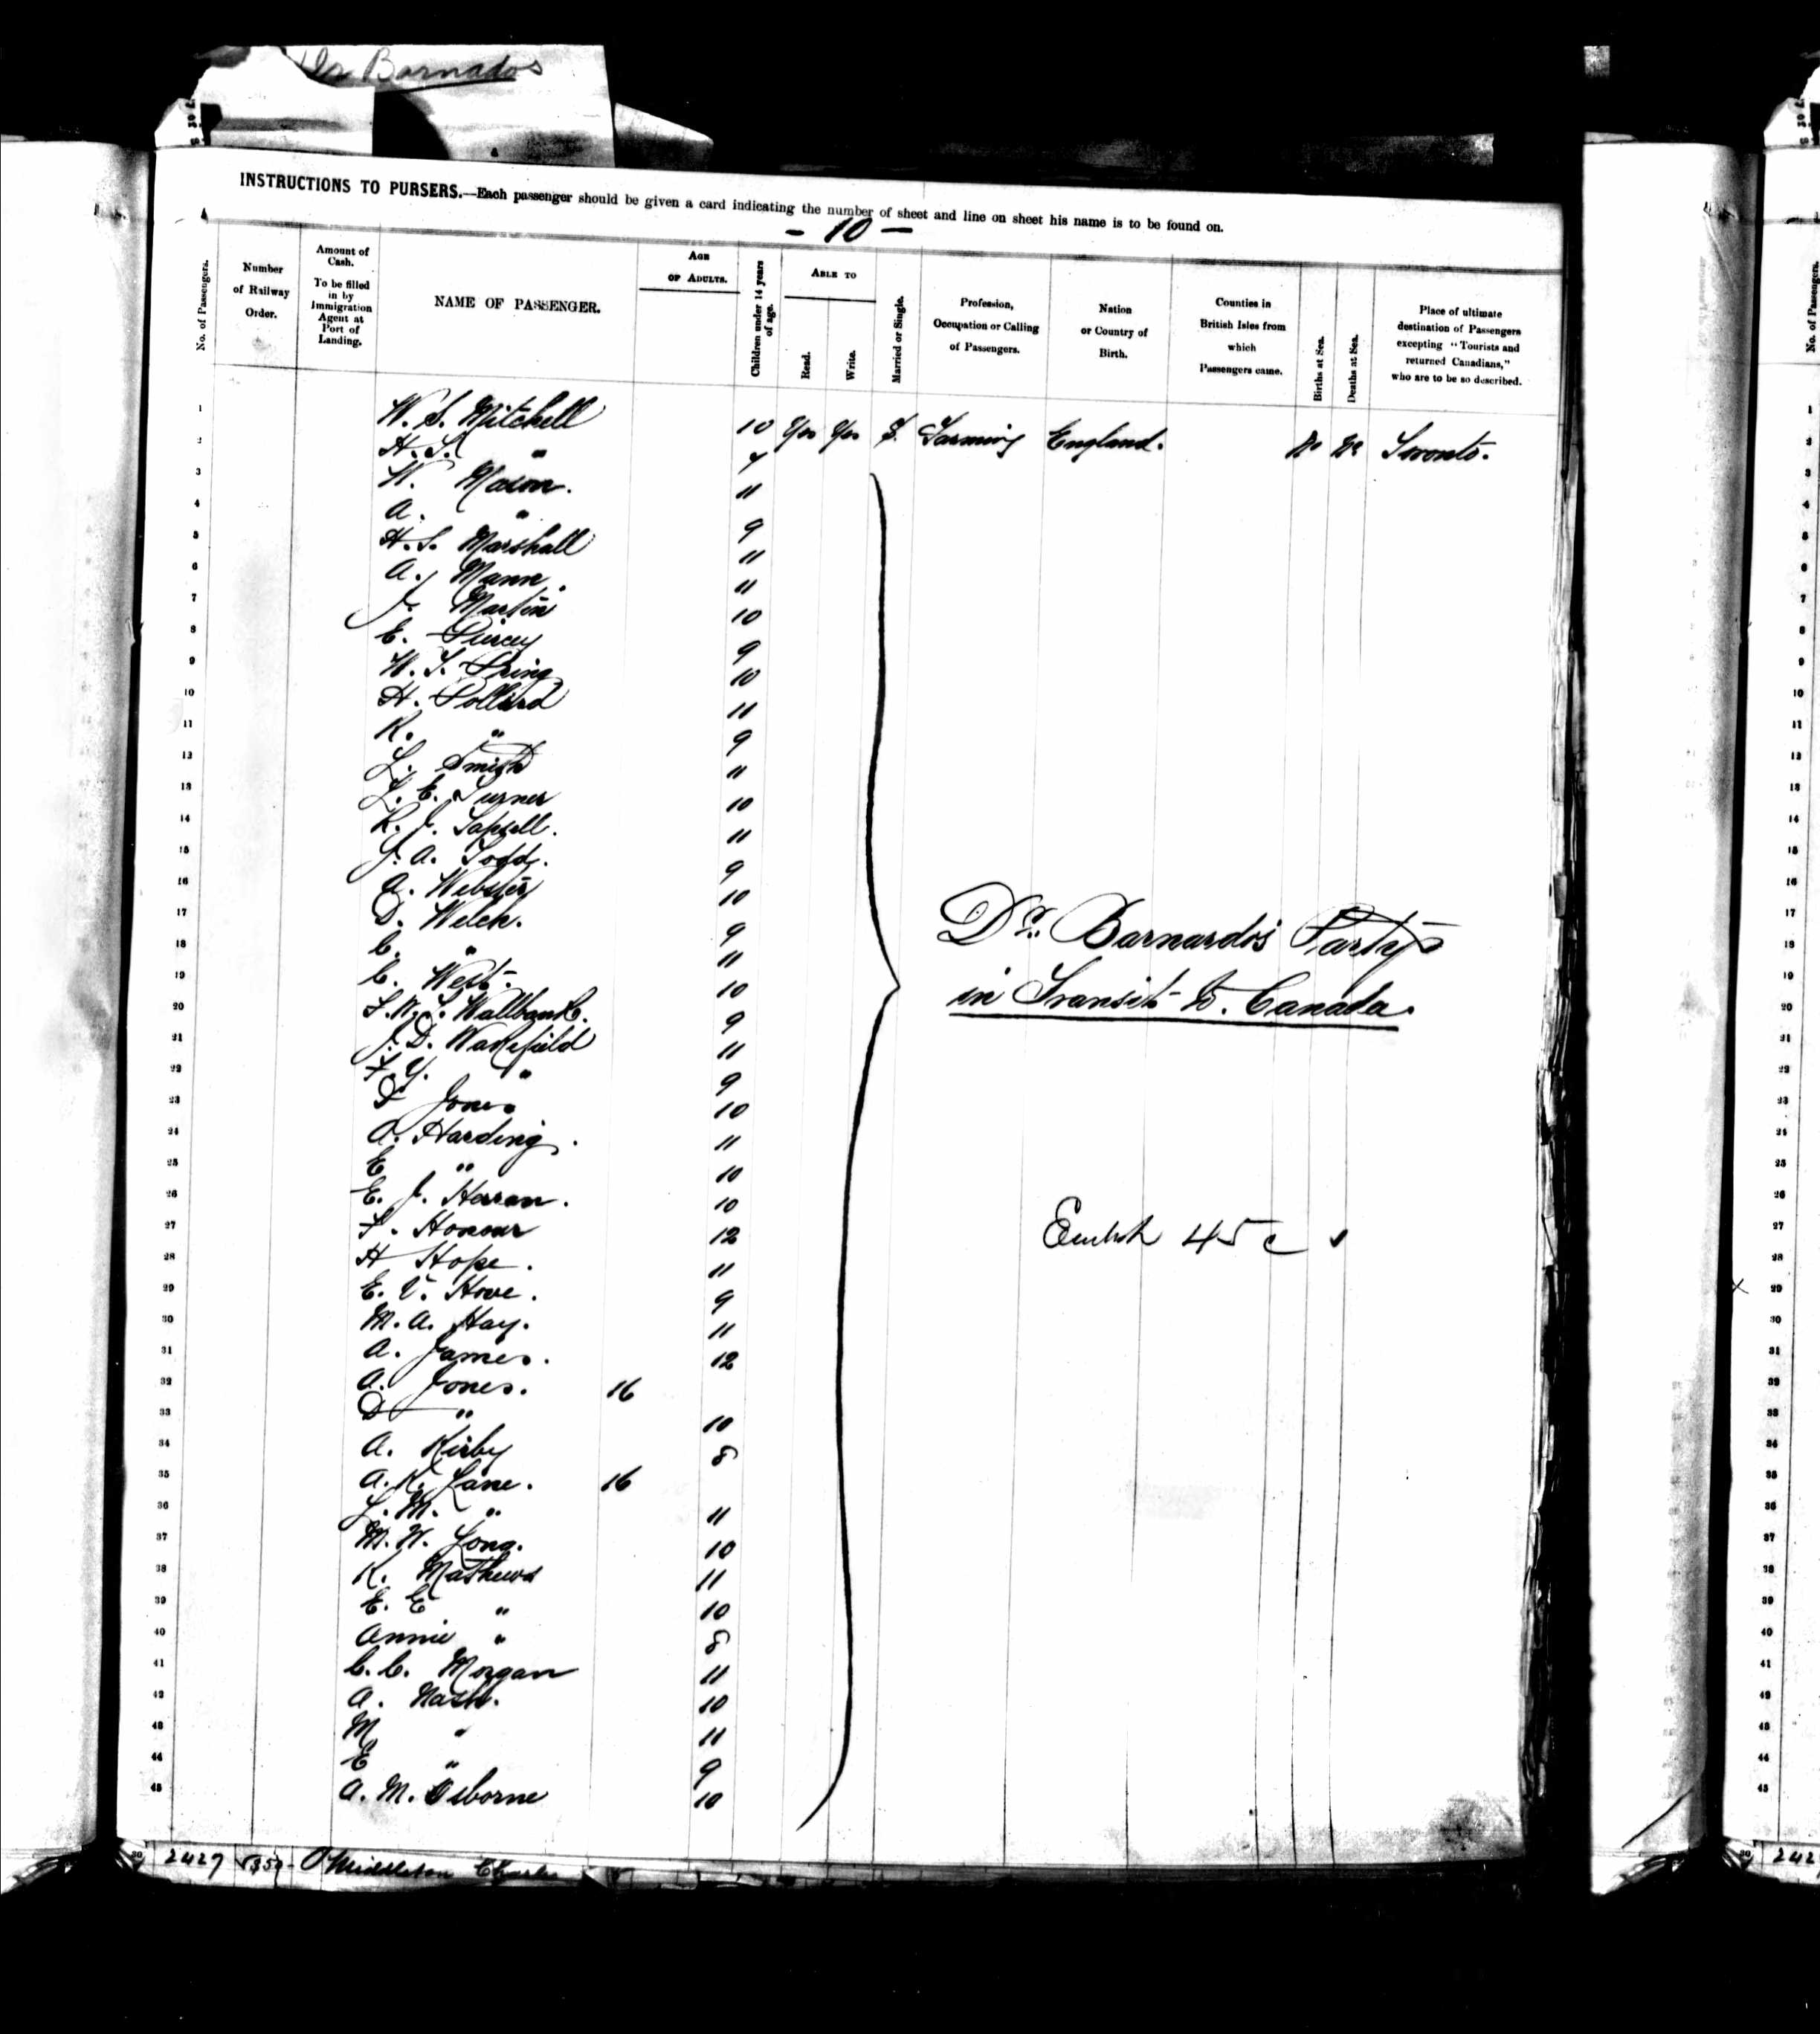 Dr Barnados
INSTRUCTIONS TO PURSERS.—Each passenger should be given a card indicating the number of sheet and line on sheet his name is to be found on.
- 10 -
No. of Passengers.
Number of Railway Order.
Amount of Cash. To be filled in by Immigration Agent at Port of Landing.
NAME OF PASSENGER.
AGE OF ADULTS.
Children under 14 years of age.
ABLE TO
Read.
Write.
Married or Single.
Profession, Occupation or Calling of Passengers.
Nation or Country of Birth.
Counties in British Isles from which Passengers came.
Births at Sea.
Deaths at Sea.
Place of ultimate destination of Passengers excepting "Tourists and returned Canadians," who are to be so described.
1 W. S. Mitchell 10 Yes Yes S. Farming England. No No Toronto. 1
2 H. S. " 2
3 W. Mason. 11 3
4 A. " 9 4
5 H. S. Marshall 11 5
6 A. Mann. 11 6
7 J. Martin 10 7
8 E. Piercey 9 8
9 W. T. Pring 10 9
10 H. Pollard 11 10
11 K. " 9 11
12 L. Smith 11 12
13 L. E. Turner 10 13
14 R. J. Tapsell. 11 14
15 J. A. Todd. 9 15
16 A. Webster 10 16
17 D. Welch. 9 17
18 C. " 11 18
19 C. West. 10 19
20 F. W. T. Wallbank. 9 20
21 J. D. Wakefield 11 21
22 F. Y. " 9 22
23 D Jones 10 23
24 A. Harding. 11 24
25 E " 10 25
26 E. J. Herran. 10 26
27 F. Honour 12 27
28 H Hope. 11 28
29 E. V. Howe. 9 29
30 M. A. Hay. 11 30
31 A. James. 12 31
32 A. Jones. 16 32
33 D " 10 33
34 A. Kirby 8 34
35 A. K. Lane. 16 35
36 L. M. " 11 36
37 M. W. Long. 10 37
38 K. Mathews 11 38
39 E. E " 10 39
40 Annie " 8 40
41 C. C. Morgan 11 41
42 A. Nash. 10 42
43 M " 11 43
44 E " 9 44
45 A. M. Osborne 10 45
Dr. Barnardo's Party
in Transit to. Canada.
45 c
2427 Middleton Charles